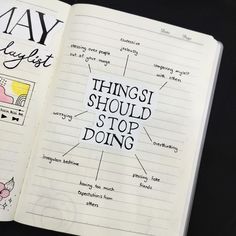 MAY
playlist
Date:
Page:
THINGS I
SHOULD
STOP
DOING
obsessing over people
out of your range
excessive
jealousy
comparing myself
with others
overthinking
pleasing fake
friends
having too much
expectations from
others
irregular bedtime
worrying